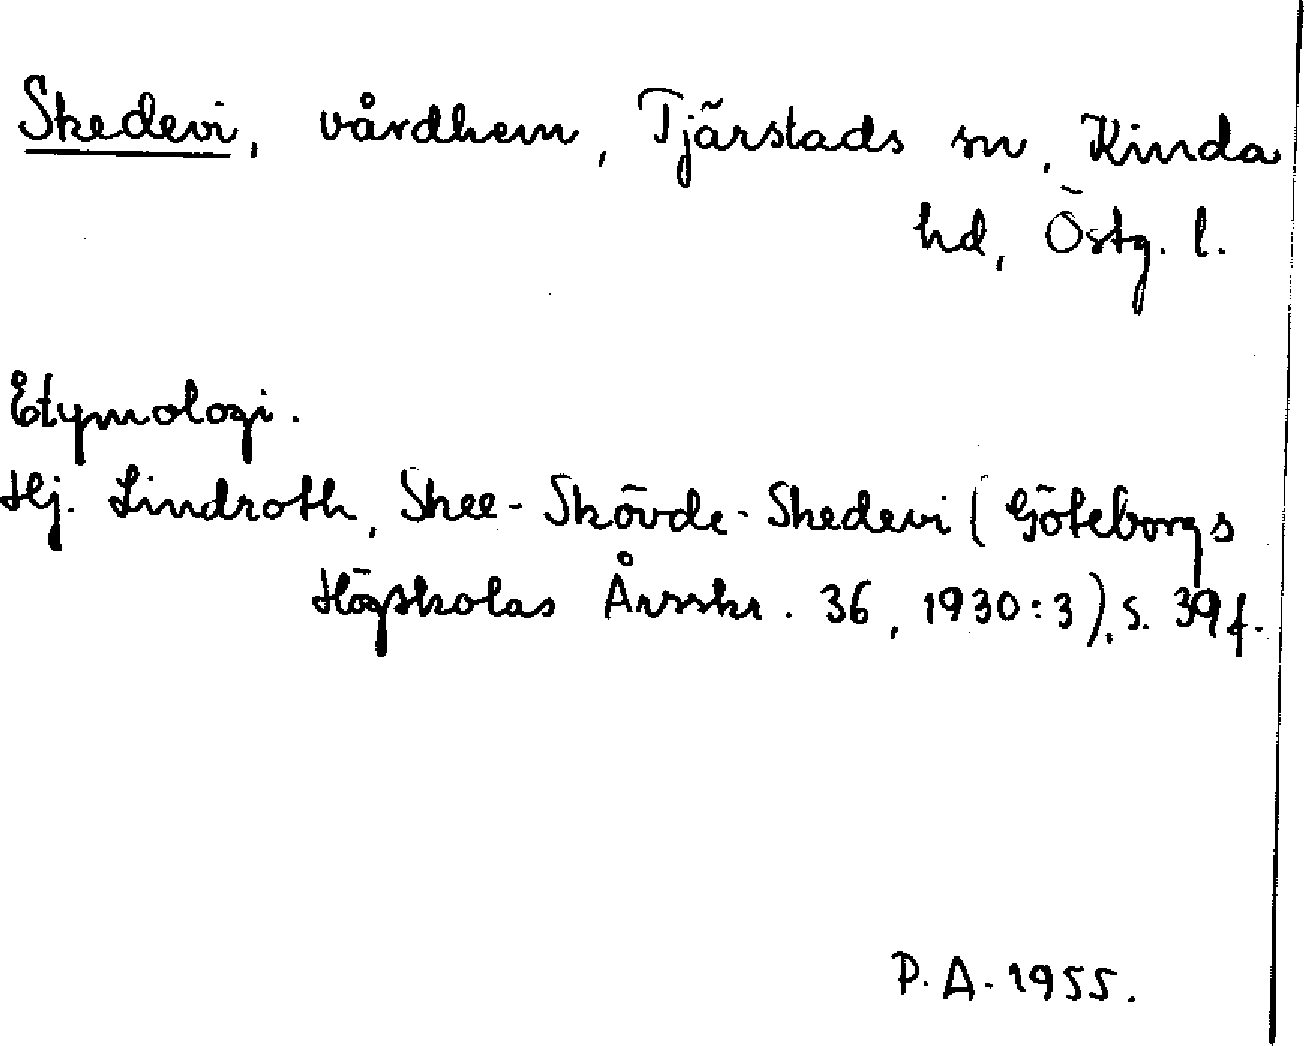 Skedevi, vårdhem, Tjärstads sn, Kinda
hd, Östg. l.
Etymologi.
Hj. Lindroth, Skee-Skövde-Skedevi (Göteborgs
Högskolas Årsskr. 36, 1930:3), s. 39 f.
P. A. 1955.